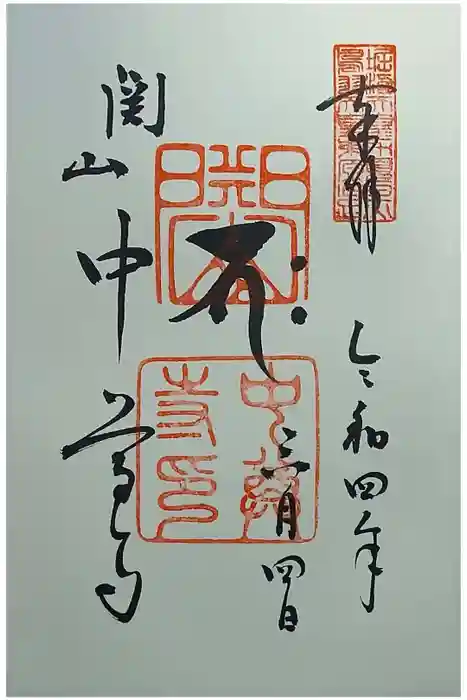 奉拝
令和四年
三月四日
關山
中尊寺印
関山
中尊寺